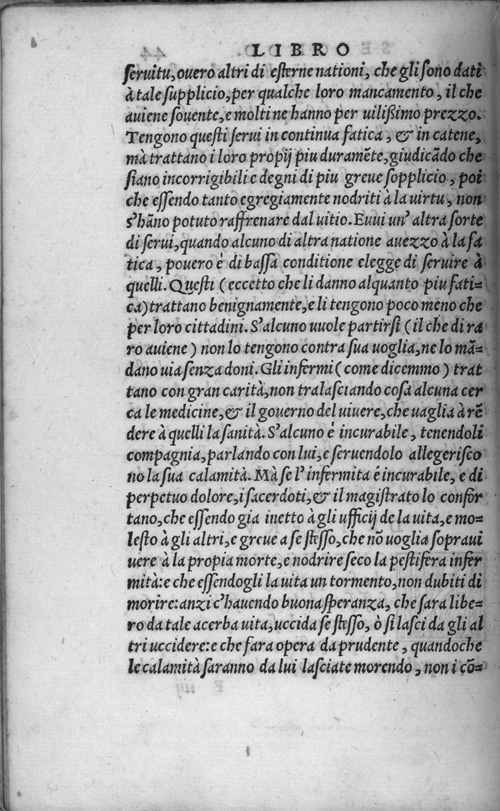 LIBRO
ſeruitu, ouero altri di eſterne nationi, che gli ſono dati
à tale ſupplicio, per qualche loro mancamento, il che
auiene ſouente, e molti ne hanno per uiliſſimo prezzo.
Tengono queſti ſerui in continua fatica, & in catene,
mà trattano i loro propij piu duramēte, giudicādo che
ſiano incorrigibili e degni di piu greue ſopplicio, poi
che eſſendo tanto egregiamente nodriti à la uirtu, non
s'hāno potuto raffrenare dal uitio. Euui un' altra ſorte
di ſerui, quando alcuno di altra natione auezzo à la fa
tica, pouero è di baſſa conditione elegge di ſeruire à
quelli. Queſti (eccetto che li danno alquanto piu fati=
ca) trattano benignamente, e li tengono poco meno che
per loro cittadini. S'alcuno uuole partirſi (il che di ra
ro auiene) non lo tengono contra ſua uoglia, ne lo mā=
dano uia ſenza doni. Gli infermi (come dicemmo) trat
tano con gran carità, non tralaſciando coſa alcuna cer
ca le medicine, & il gouerno del uiuere, che uaglia à rē
dere à quelli la ſanità. S'alcuno è incurabile, tenendoli
compagnia, parlando con lui, e ſeruendolo allegeriſco
no la ſua calamità. Mà ſe l'infermita è incurabile, e di
perpetuo dolore, i ſacerdoti, & il magiſtrato lo confor
tano, che eſſendo gia inetto à gli ufficij de la uita, e mo=
leſto à gli altri, e greue a ſe ſteſſo, che nō uoglia ſoprauì
uere à la propia morte, e nodrire ſeco la peſtifera infer
mità: e che eſſendogli la uita un tormento, non dubiti di
morire: anzi c'hauendo buona ſperanza, che ſara libe=
ro da tale acerba uita, uccida ſe ſteſſo, ò ſi laſci da gli al
tri uccidere: e che fara opera da prudente, quandoche
le calamità ſaranno da lui laſciate morendo, non i cō=